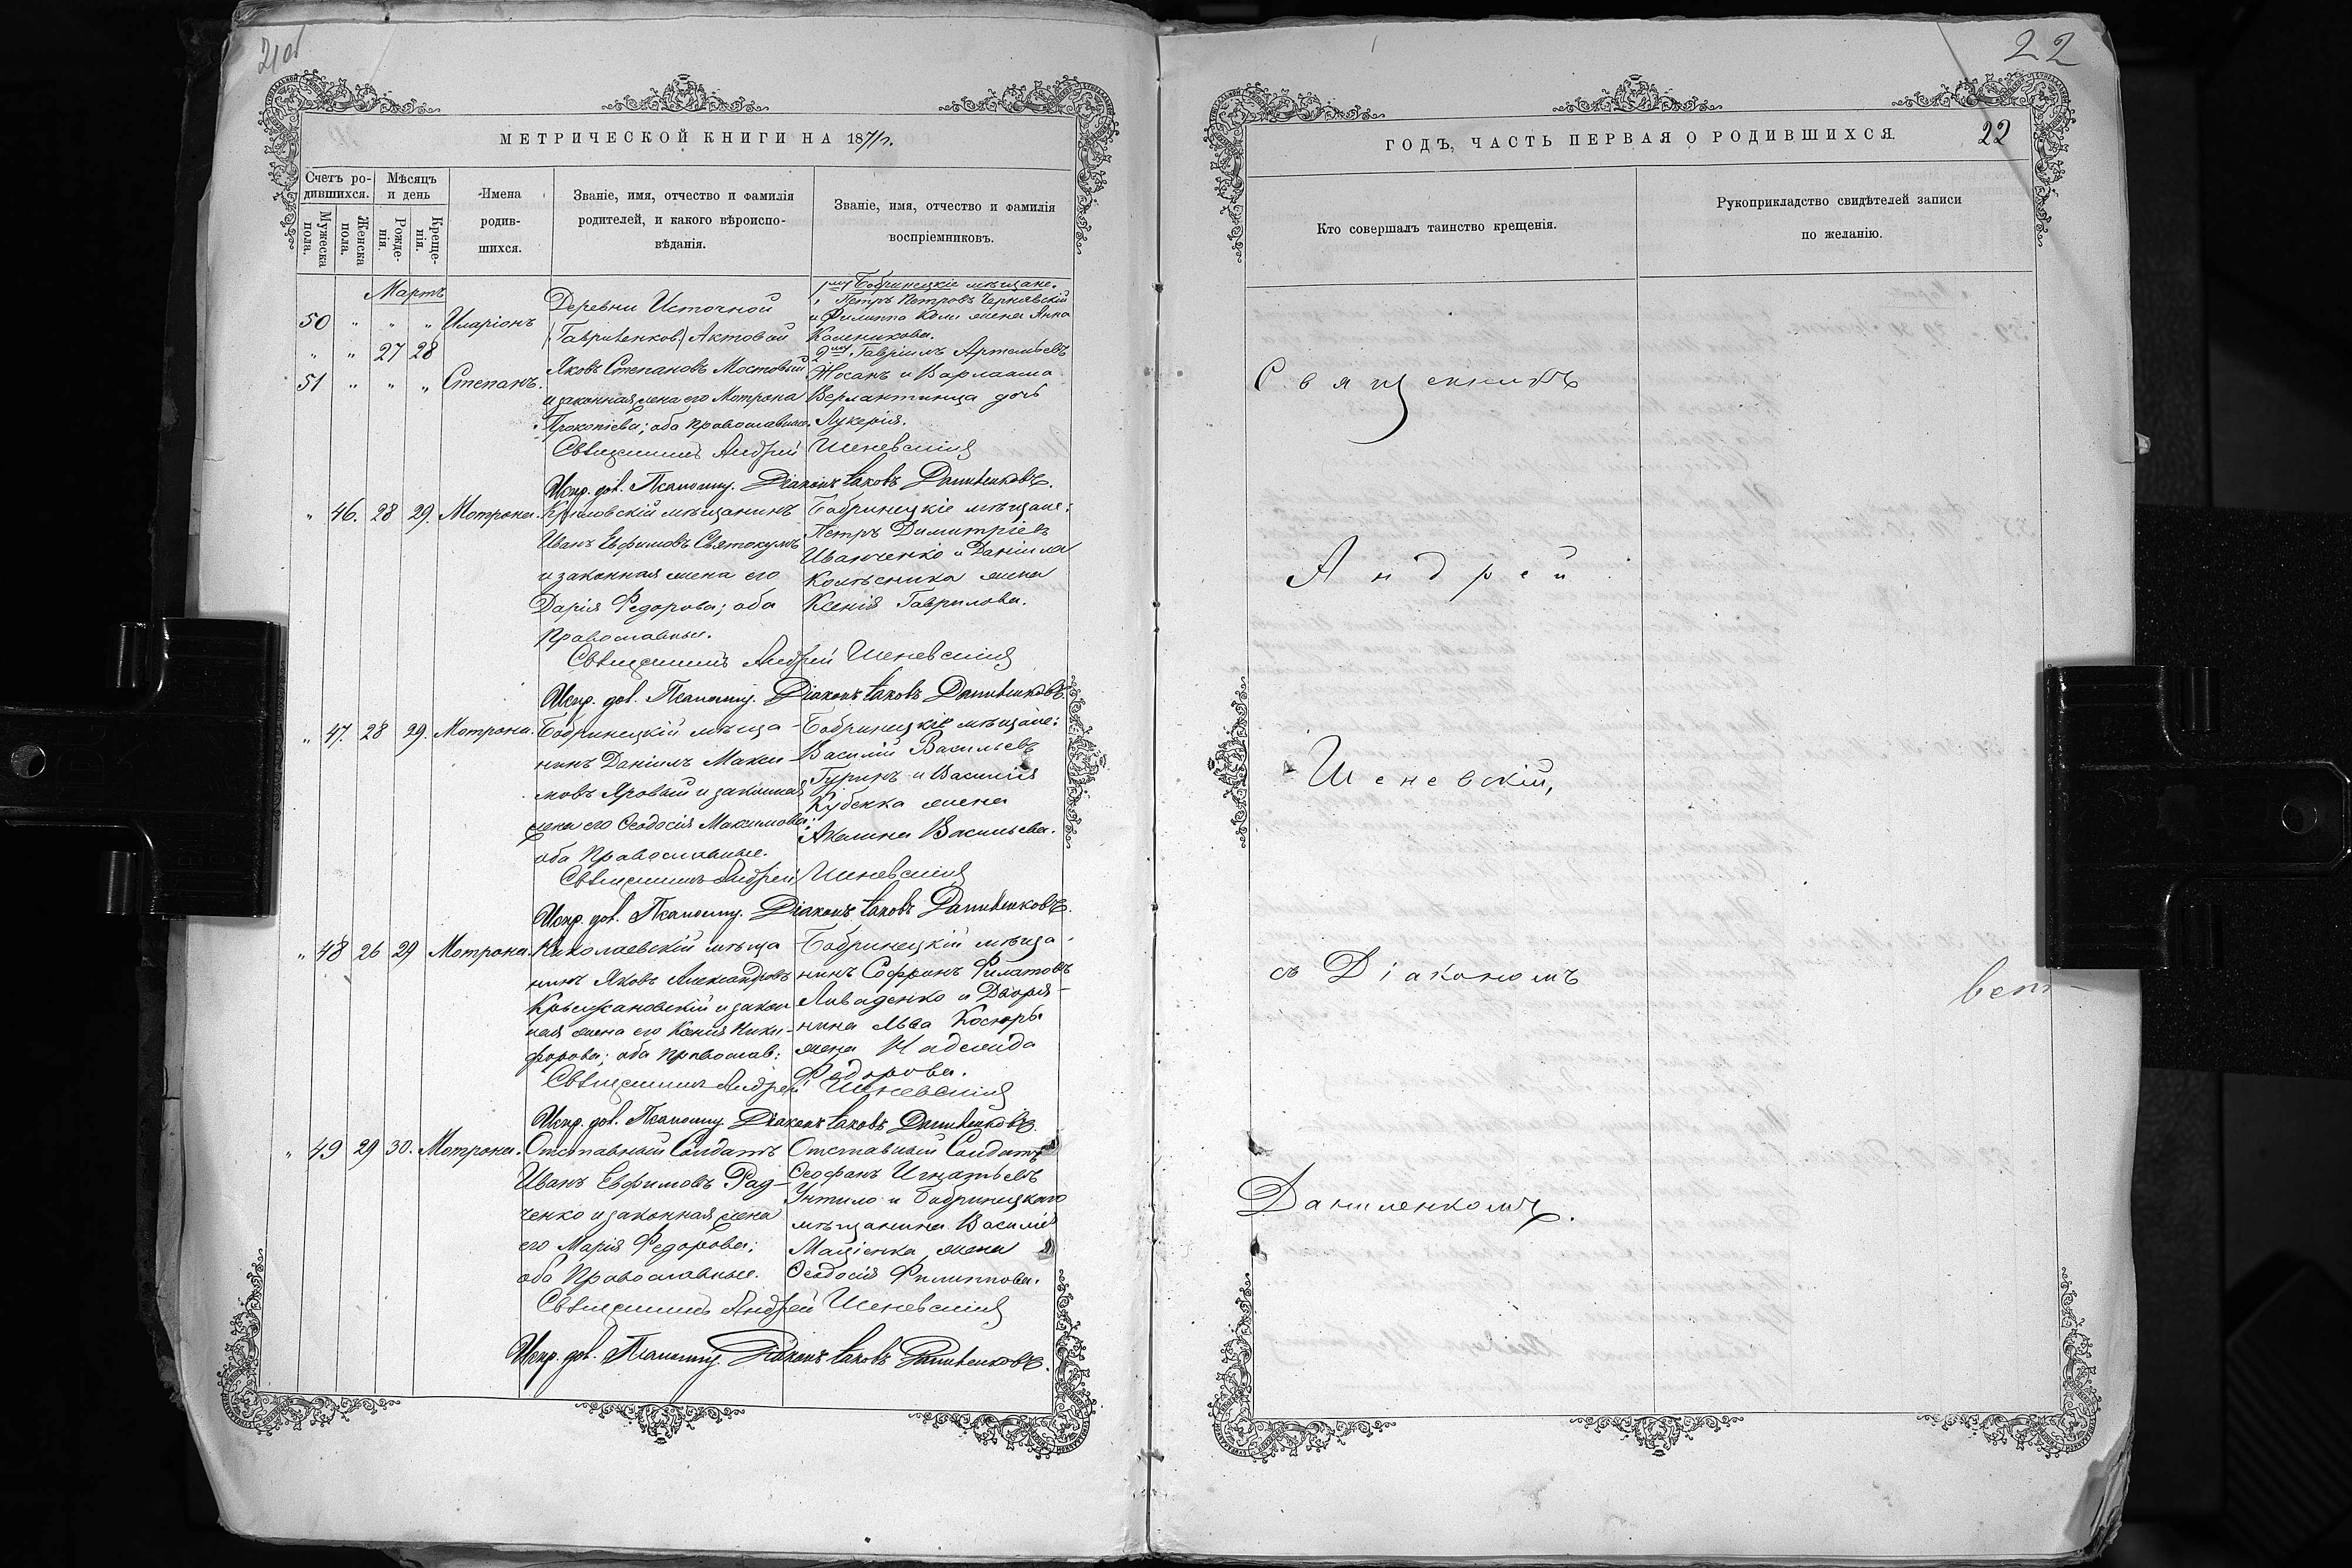 21об
МЕТРИЧЕСКОЙ КНИГИ НА 1871 г.
Счетъ ро-
дившихся.
Мѣсяцъ
и день
Мужеска
пола.
Женска
пола.
Рожде-
нія.
Креще-
нія.
Имена
родив-
шихся.
Званіе, имя, отчество и фамилія
родителей, и какого вѣроиспо-
вѣданія.
Званіе, имя, отчество и фамилія
воспріемниковъ.
Мартъ
50 " " " Иларіонъ
" " 27 28
51 " " " Степанъ.
Деревни Источной
Актовой
Яковъ Степановъ Мостовый
и законная жена его Мотрона
Прокопіева; оба православные.
Бобринецкіе мѣщане.
Петръ Петровъ Чернявскій
и Филиппа жена Анна
2й Гавріилъ Артемьевъ
Носанъ и Варлаама
дочь
Лукерія.
Священникъ Андрей Шеневскій
Испр. дол. Псаломщ. Діаконъ Іаковъ Даниленковъ.
" 46. 28 29. Мотрона.
Крыловскій мѣщанинъ
Иванъ Евфимовъ
и законная жена его
Дарія Федорова; оба
Православные.
Бобринецкіе мѣщане:
Петръ Димитріевъ
Иванченко и Даніила
Колѣсника жена
Ксенія Гаврилова.
Священникъ Андрей Шеневскій
Испр. дол. Псаломщ. Діаконъ Іаковъ Даниленковъ.
" 47. 28 29. Мотрона.
Бобринецкій мѣща-
нинъ Даніилъ Макси-
мовъ Яровый и законная
жена его Ѳеодосія Максимова;
оба Православные.
Бобринецкіе мѣщане:
Василій Васильевъ
Гуринъ и Василія
жена
Акилина Васильева.
Священникъ Андрей Шеневскій
Испр. дол. Псаломщ. Діаконъ Іаковъ Даниленковъ.
" 48 26 29 Мотрона.
Николаевскій мѣща
нинъ Яковъ Александровъ
Крыжановскій и закон
ная жена его Ксенія Ники-
форова; оба православ:
Бобринецкій мѣща-
нинъ Филатовъ
и Дворя-
нина Льва
жена Надежда
Федорова.
Священникъ Андрей Шеневскій
Испр. дол. Псаломщ. Діаконъ Іаковъ Даниленковъ.
" 49 29 30. Мотрона.
Отставный Солдатъ
Иванъ Евфимовъ Рад-
ченко и законная жена
его Марія Федорова;
оба Православные.
Отставный Солдатъ
Ѳеофанъ Игнатьевъ
Унтило и Бобринецкаго
мѣщанина Василія
жена
Ѳеодосія Филиппова.
Священникъ Андрей Шеневскій
Испр. дол. Псаломщ. Діаконъ Іаковъ Даниленковъ.
22
ГОДЪ, ЧАСТЬ ПЕРВАЯ О РОДИВШИХСЯ.
22
Кто совершалъ таинство крещенія.
Рукоприкладство свидѣтелей записи
по желанію.
Священникъ
Андрей
Шеневскій,
съ Діакономъ
Даниленкомъ.